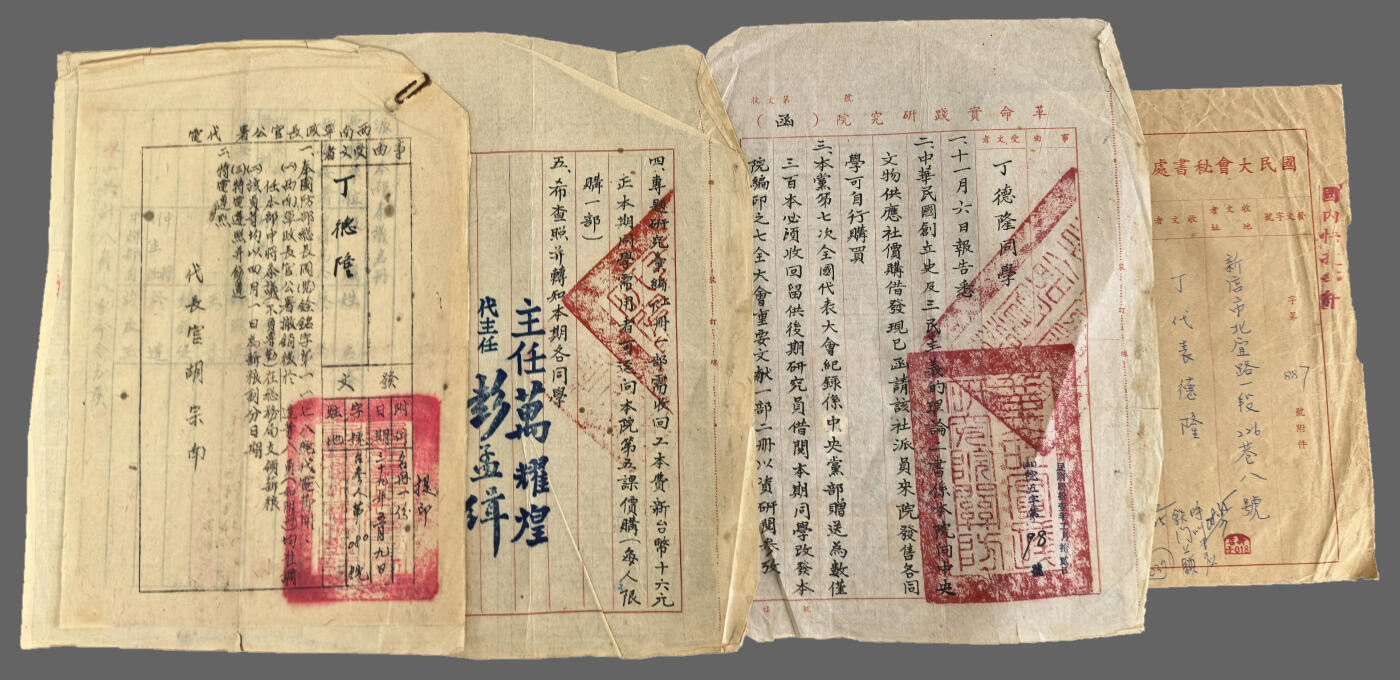 國內快遞郵件
國民大會秘書處
發文字號
收文者地址
收文者
字第
887
號附件
新店市北宜路一段226巷八號
丁代表德隆
革命實踐研究院(函)
事由
受文者
丁德隆同學
一、十一月六日報告悉
二、中華民國創立史及三民主義的理論一書係本院向中央
文物供應社價購借發現已函請該社派員來院發售各同
學可自行購買
三、本黨第七次全國代表大會紀錄係中央黨部贈送為數僅
三百本必須收回留供後期研究員借閱本期同學改發本
院編印之七全大會重要文献一部二冊以資研閱參攷
98
號
四、專題研究彙編上下冊一部需收回工本費新台幣十六元
正本期同學需用者可逕向本院第五課價購(每人限
購一部)
五、希查照并轉知本期各同學
主任萬耀煌
代主任彭孟緝
西南軍政長官公署代電
事由
受文者
丁德隆
發文
附件
名冊一份
日期
三十九年五月九日
字號
駐地
提印
一、奉國防部總長周
(一)西南軍政長官公署撤銷後於
任本部中將參議
在總務局支領薪粮
(二)該員等均以四月一日為薪粮劃分日期
(三)特電遵照并飭遵
二、特電遵照
代長官胡宗南